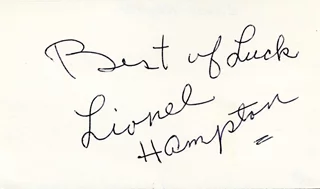 Best of Luck
Lionel
Hampton